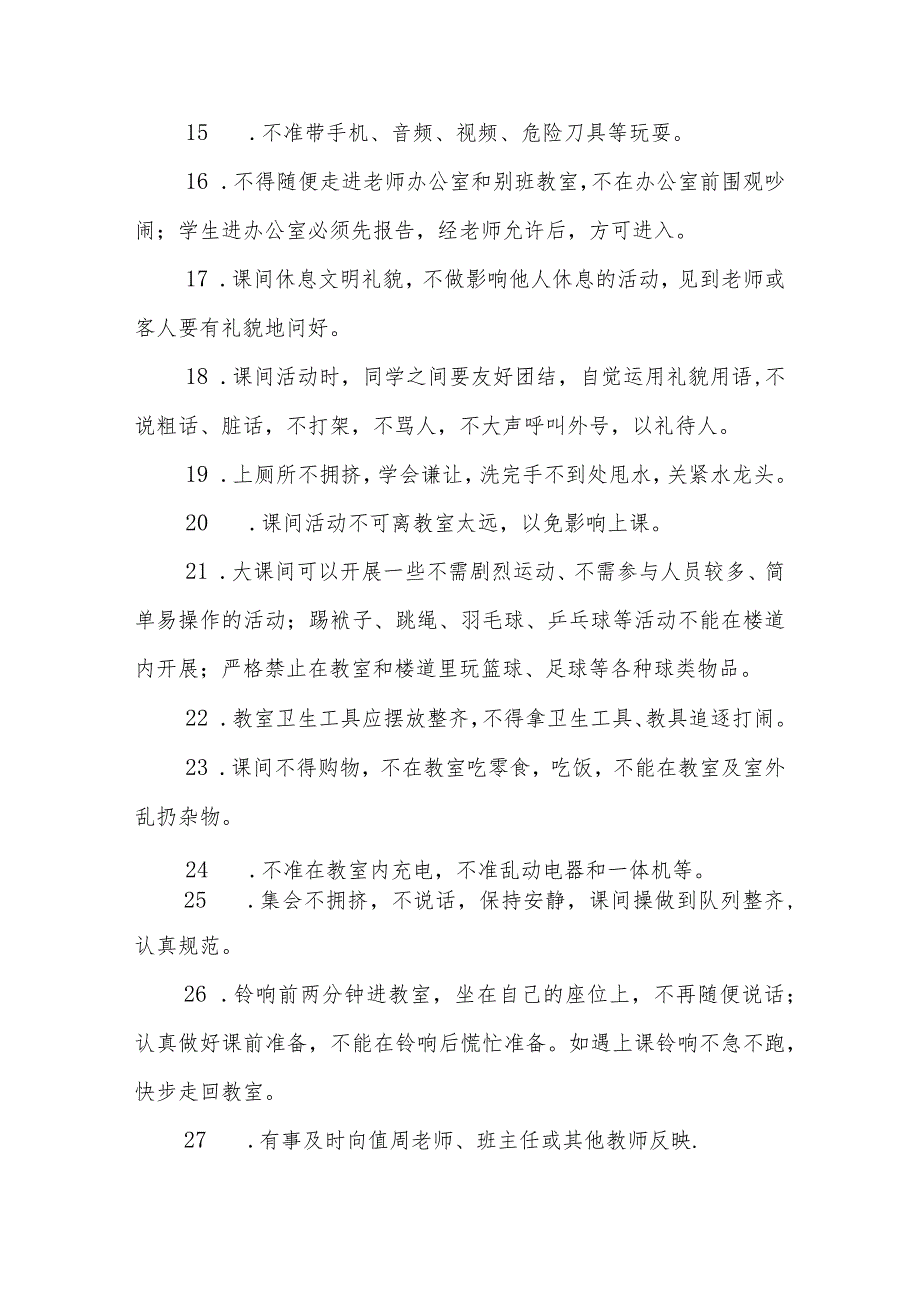 15 .不准带手机、音频、视频、危险刀具等玩耍。
16 .不得随便走进老师办公室和别班教室,不在办公室前围观吵
闹；学生进办公室必须先报告，经老师允许后，方可进入。
17 .课间休息文明礼貌，不做影响他人休息的活动，见到老师或
客人要有礼貌地问好。
18 .课间活动时，同学之间要友好团结，自觉运用礼貌用语,不
说粗话、脏话，不打架，不骂人，不大声呼叫外号，以礼待人。
19 .上厕所不拥挤,学会谦让,洗完手不到处甩水,关紧水龙头。
20 .课间活动不可离教室太远，以免影响上课。
21 .大课间可以开展一些不需剧烈运动、不需参与人员较多、简
单易操作的活动；踢袱子、跳绳、羽毛球、乒乓球等活动不能在楼道
内开展；严格禁止在教室和楼道里玩篮球、足球等各种球类物品。
22 .教室卫生工具应摆放整齐,不得拿卫生工具、教具追逐打闹。
23 .课间不得购物，不在教室吃零食，吃饭，不能在教室及室外
乱扔杂物。
24 .不准在教室内充电，不准乱动电器和一体机等。
25 .集会不拥挤，不说话，保持安静，课间操做到队列整齐,
认真规范。
26 .铃响前两分钟进教室，坐在自己的座位上，不再随便说话；
认真做好课前准备，不能在铃响后慌忙准备。如遇上课铃响不急不跑,
快步走回教室。
27 .有事及时向值周老师、班主任或其他教师反映.